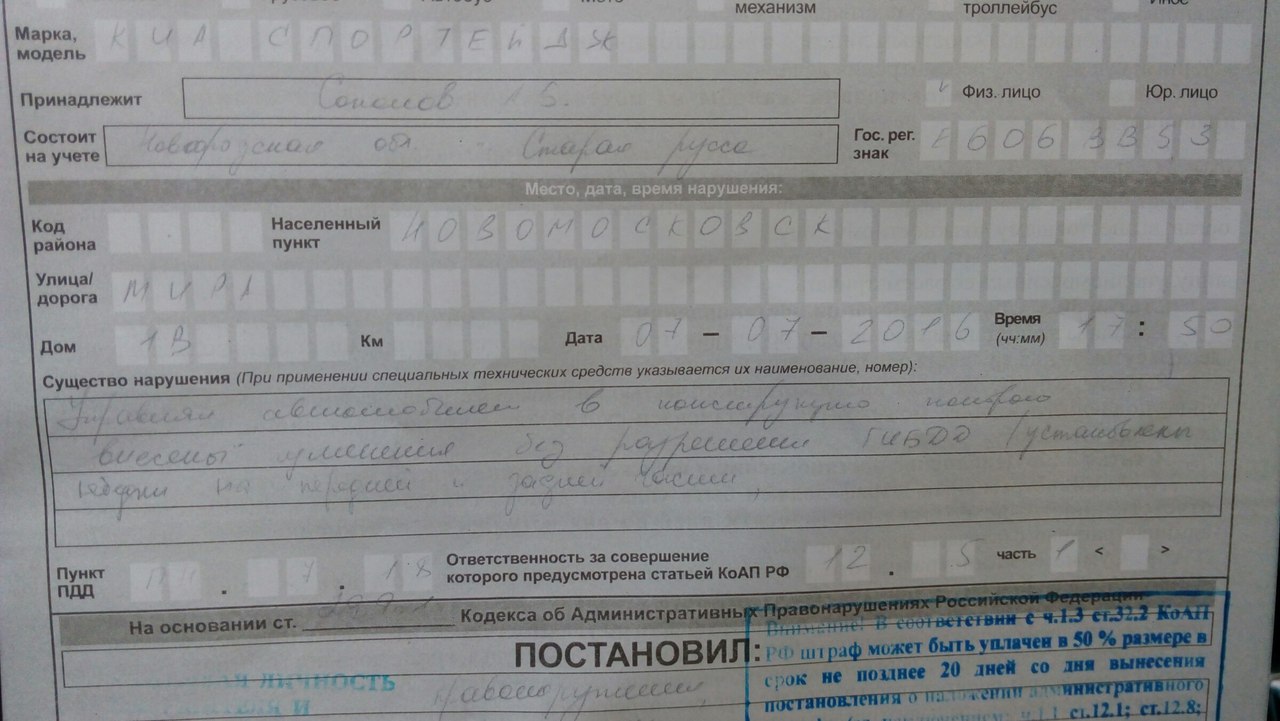 механизм троллейбус Иное
Марка, модель КИА СПОРТЕЙДЖ
Принадлежит В. Физ. лицо Юр. лицо
Состоит на учете Новгородская обл. Старая русса Гос. рег. знак Е606ВВ53
Место, дата, время нарушения:
Код района Населенный пункт НОВОМОСКОВСК
Улица/дорога МИРА
Дом 1В Км Дата 07 – 07 – 2016 Время (чч:мм) 17 : 50
Существо нарушения (При применении специальных технических средств указывается их наименование, номер):
Управлял автомобилем в конструкцию которого
внесены изменения без разрешения ГИБДД (установлены
на передней и задней части
Пункт ПДД ПП . 7 . 18 Ответственность за совершение которого предусмотрена статьей КоАП РФ 12 . 5 часть 1 < >
На основании ст. Кодекса об Административных Правонарушениях Российской Федерации
ПОСТАНОВИЛ:
Внимание! В соответствии с ч.1.3 ст.32.2 КоАП
РФ штраф может быть уплачен в 50 % размере в
срок не позднее 20 дней со дня вынесения
постановления о наложении административного
ч.1.1 ст.12.1; ст.12.8;
ЛИЧНОСТЬ
И
правонарушения